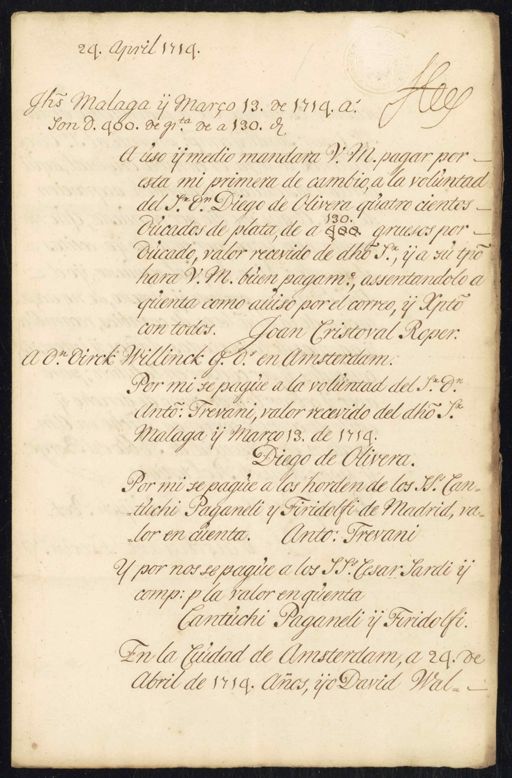 24. April 1714.
Jhs Malaga ÿ Março 13. de 1714. a.s
Son D. 400. de pta de a 130. gs
A uso ÿ medio mandara V. M. pagar por
esta mi primera de cambio, a la volùntad
del Sr. Dn. Diego de Olivera qùatro cientos
Dùcados de plata, de a 130. grùesos por
Dùcado, valor recevido de dho Sr. ÿ a sù tpo
hara V. M. bùen pagamo, assentandolo a
qùenta como aùiso por el correo, ÿ Xpto
con todos. Joan Cristoval Roper.
A Dn. Dirck Willinck q. D. g. en Amsterdam.
Por mi se pagùe a la volùntad del Sr. Dn.
Anto: Trevani, valor recevido del dho Sr.
Malaga ÿ Março 13. de 1714.
Diego de Olivera.
Por mi se pagùe a los horden de los SSr. Can=
tùchi Paganeli ÿ Firidolfi de Madrid, va=
lor en cùenta. Anto: Trevani
Y por nos se pagùe a los SSr. Cesar Sardi ÿ
comp: p la valor en qùenta
Cantùchi Paganeli ÿ Firidolfi.
En la Cùidad de Amsterdam, a 24. de
Abril de 1714. Años, ÿo David Wal=